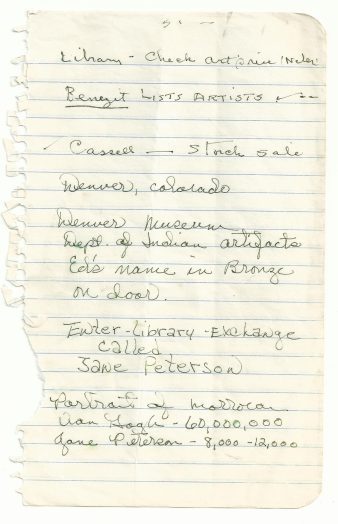 Library - Check art price 'Index'
Benezit LISTS ARTISTS
Cassell — Stock Sale
Denver, Colorado
Denver Museum
Dept. of Indian artifacts
Ed's name in Bronze
on door.
Inter-Library-Exchange
called
Jane Peterson
Portrait of Morrocan
Van Gogh - 60,000,000
Jane Peterson - 8,000-12,000